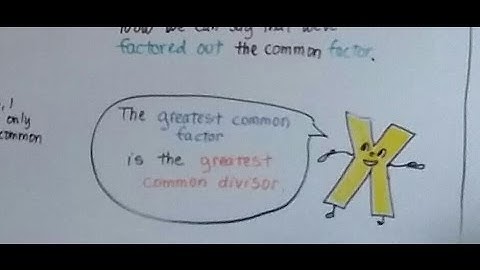 Now we can say that we've
factored out the common factor.
, I
only
common
The greatest common
factor
is the greatest
common divisor.